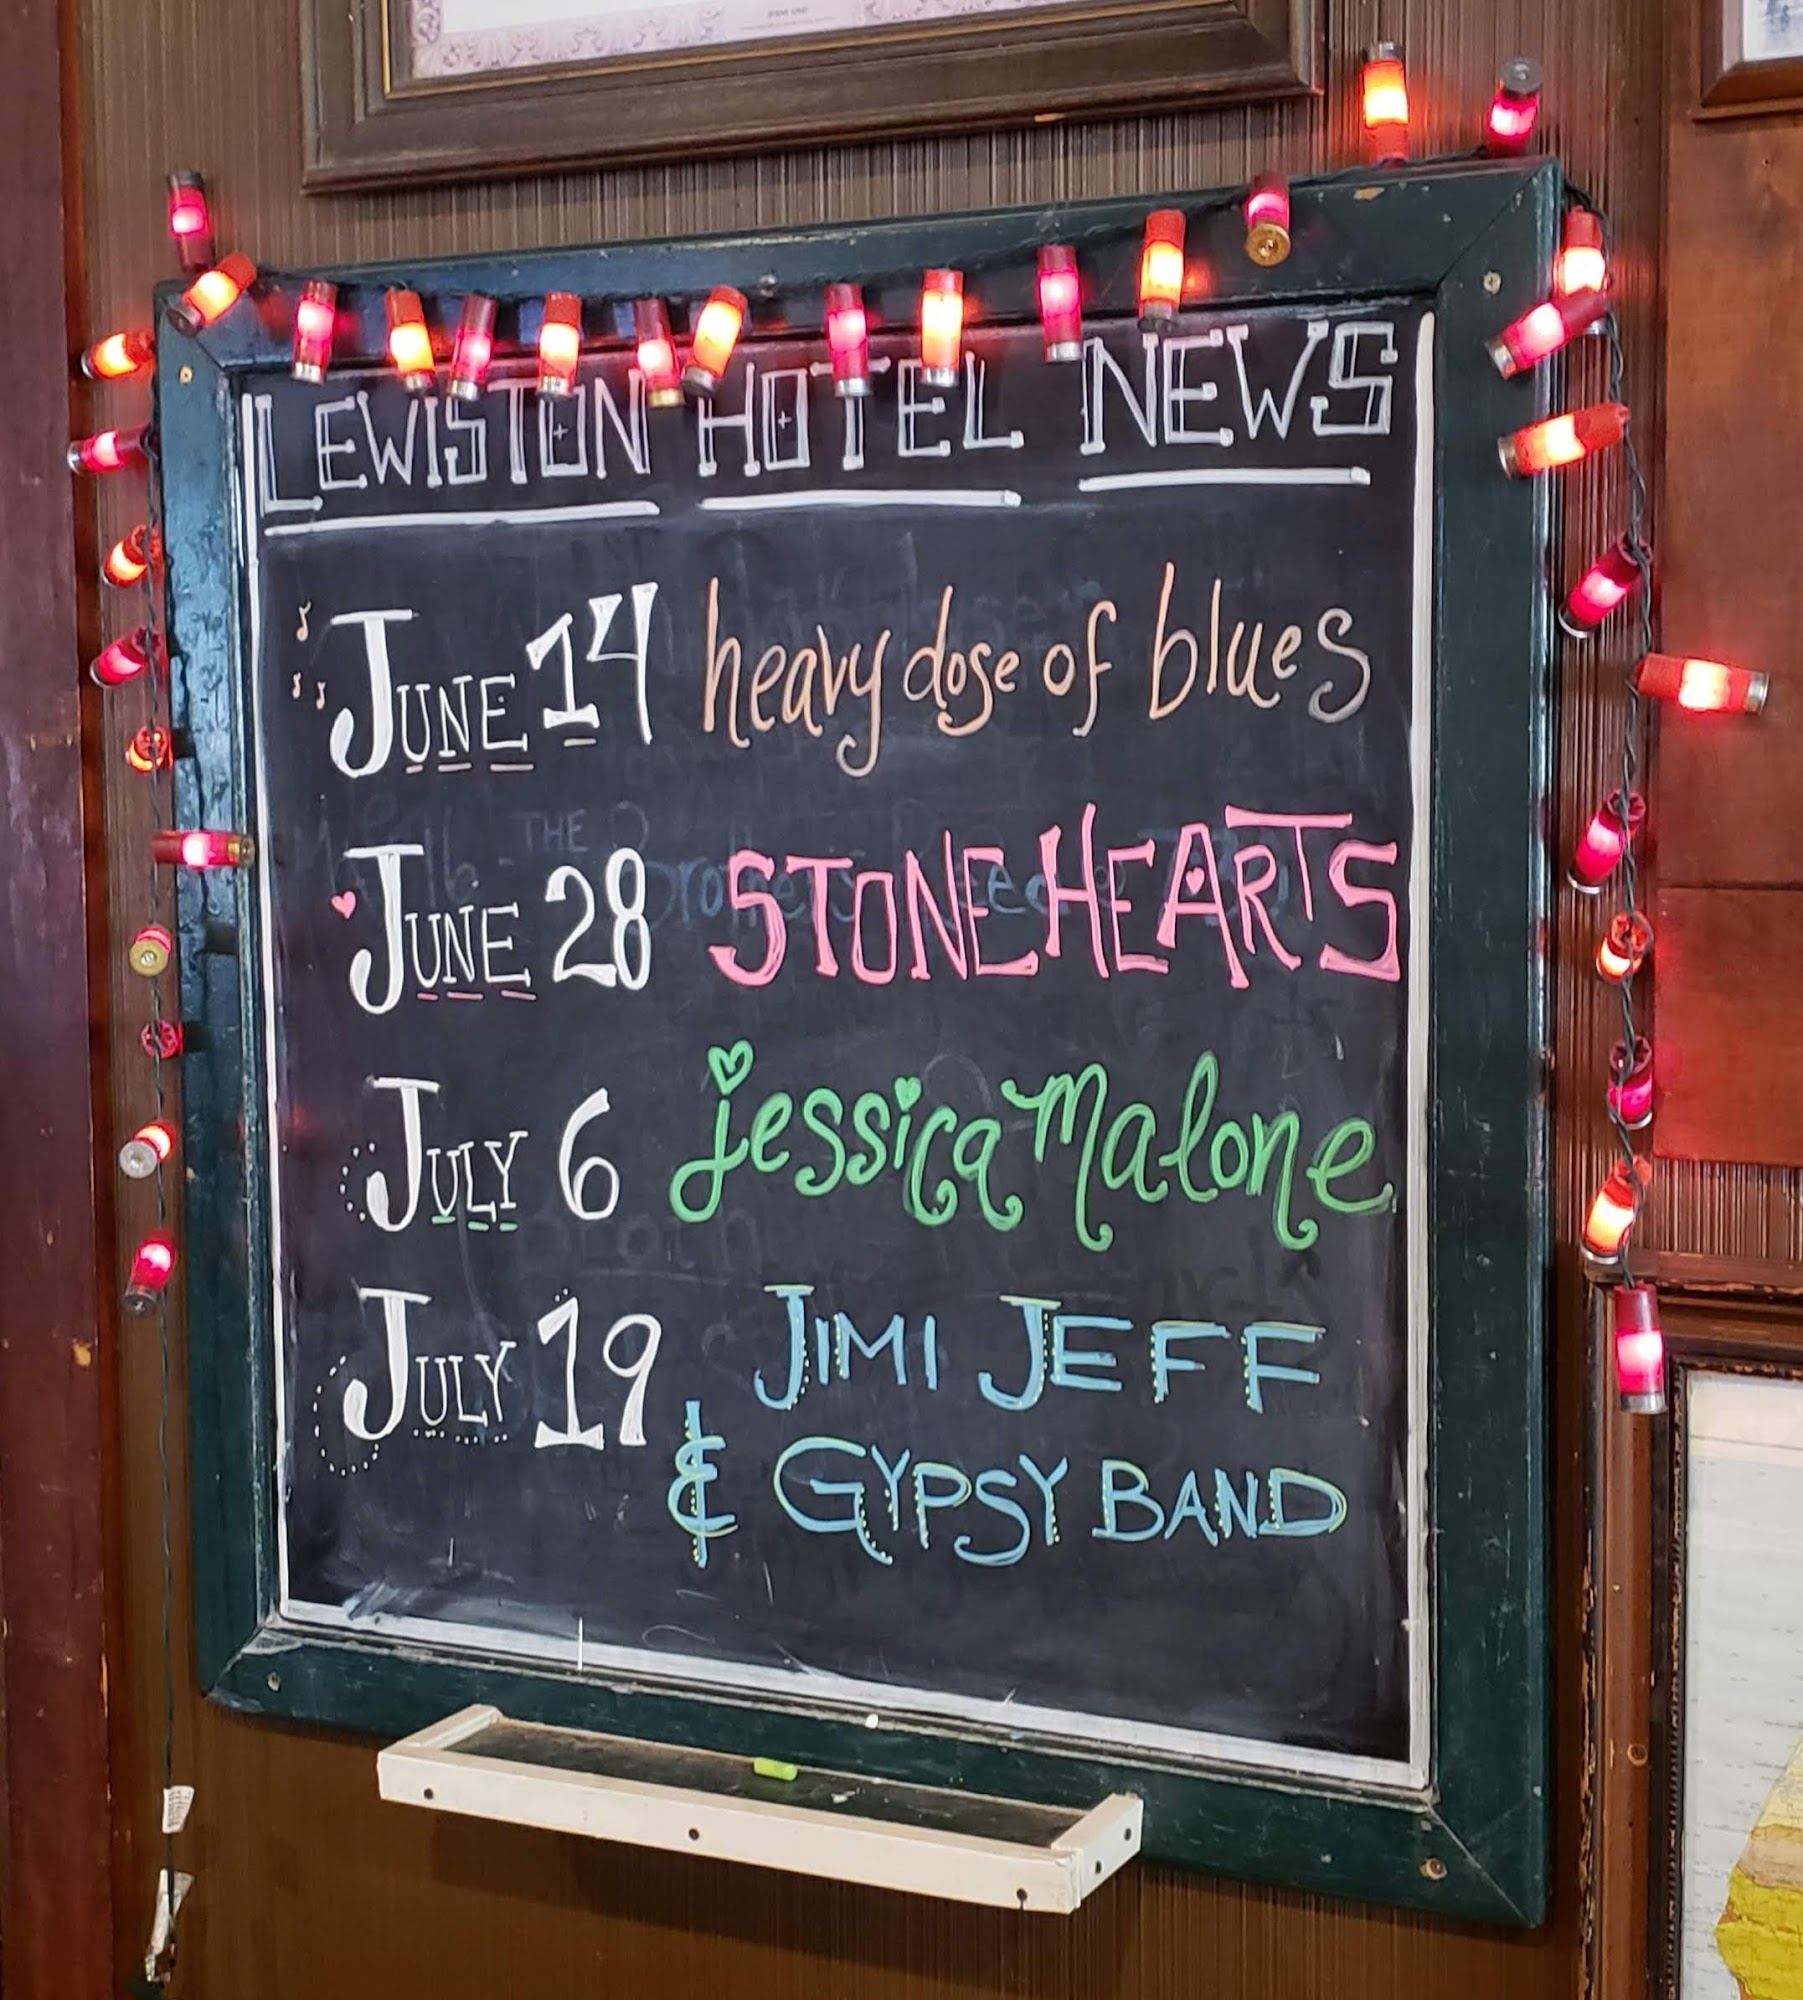 LEWISTON HOTEL NEWS
JUNE 14 heavy dose of blues
JUNE 28 STONEHEARTS
JULY 6 jessica malone
JULY 19 JIMI JEFF
& GYPSY BAND